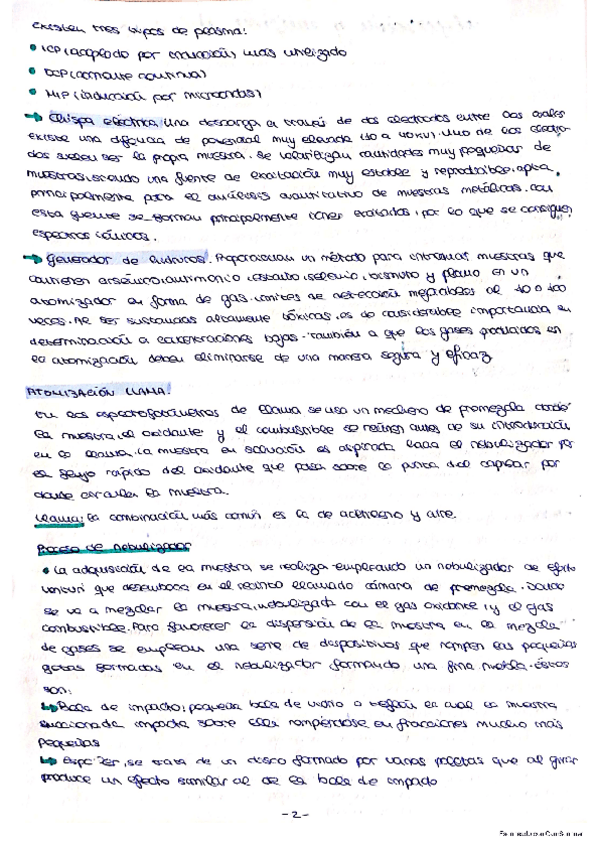 Existen tres tipos de plasma:
• ICP (acoplado por inducción), más utilizado
• DCP (corriente continua)
• MIP (inducción por microondas)
→ Chispa eléctrica. Una descarga a través de dos electrodos entre los cuales
existe una diferencia de potencial muy elevada (10 a 40KV). Uno de los electro-
dos suelen ser la propia muestra. Se volatilizan cantidades muy pequeñas de
muestras, siendo una fuente de excitación muy estable y reproducible, apta,
principalmente para el análisis cuantitativo de muestras metálicas. Con
esta fuente se forman principalmente iones excitados, por lo que se consiguen
espectros iónicos.
→ Generador de hidruros. Proporcionan un método para introducir muestras que
contienen arsénico, antimonio, estaño, selenio, bismuto y plomo en un
atomizador en forma de gas. Límites de detección mejorables de 10 a 100
veces. Al ser sustancias altamente tóxicas, es de considerable importancia su
determinación a concentraciones bajas. También a que los gases producidos en
la atomización deben eliminarse de una manera segura y eficaz
ATOMIZACIÓN LLAMA:
En los espectrofotómetros de llama se usa un mechero de premezcla donde
la muestra, el oxidante y el combustible se reúnen antes de su introducción
en la llama. La muestra en solución es aspirada hacia el nebulizador por
el flujo rápido del oxidante que pasa sobre la punta del capilar por
donde circula la muestra.
Llama: la combinación más común es la de acetileno y aire.
Proceso de nebulizador
• La adquisición de la muestra se realiza empleando un nebulizador de efecto
venturi que desemboca en el recinto llamado cámara de premezcla. Donde
se va a mezclar la muestra nebulizada con el gas oxidante, y el gas
combustible. Para favorecer la dispersión de la muestra en la mezcla
de gases se emplean una serie de dispositivos que rompen las pequeñas
gotas formadas en el nebulizador formando una fina niebla. Estos
son:
↳ Bola de impacto: pequeña bola de vidrio o teflón en cual la muestra
succionada impacta sobre ella rompiéndose en fracciones mucho más
pequeñas
↳ se trata de un disco formado por varias paletas que al girar
produce un efecto similar al de la bola de impacto
-2-